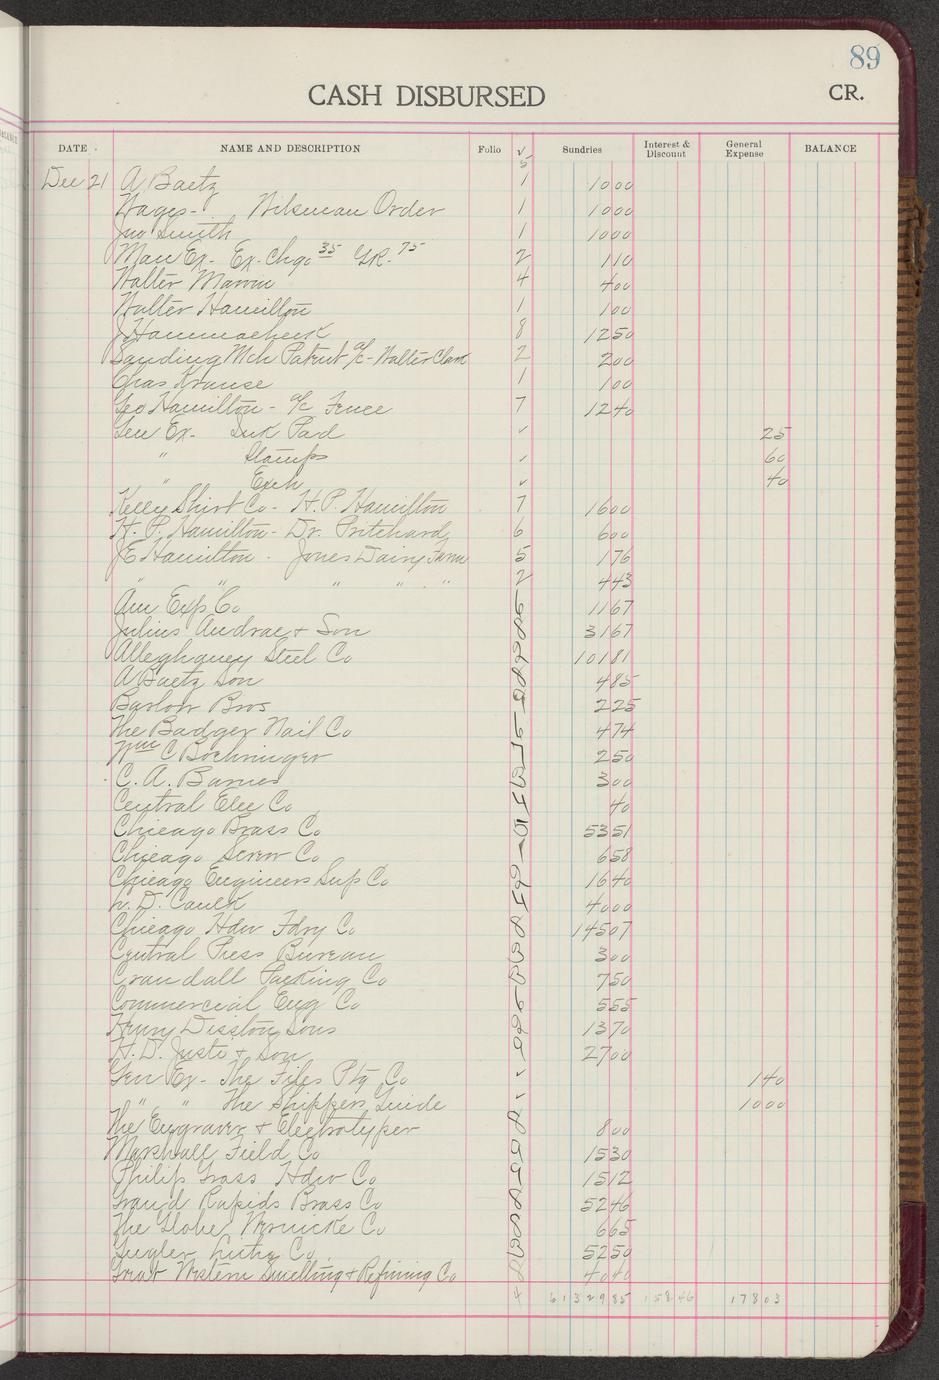 89
CASH DISBURSED CR.
DATE NAME AND DESCRIPTION Folio √ Sundries Interest & Discount General Expense BALANCE
5
Dec 21 A Baetz 1 1000
Wages - Wilsman Order 1 1000
Jno Smith 1 1000
Man Ex - Ex. Chgs 35 75 2 110
Walter Mavin 4 400
Walter Hamilton 1 100
J Hammacheck 8 1250
Sanding Mch Patent a/c - Walter Clark 2 200
Chas Krause 1 100
Geo Hamilton - a/c Fence 7 1240
Gen Ex - Ink Pad √ 25
" Stamps √ 60
" Exch √ 40
Kelly Shirt Co - H. P. Hamilton 7 1600
H. P. Hamilton - Dr. Pritchard 6 600
JE Hamilton - Jones Dairy Farm 5 176
" " " " " 2 443
Am Exp Co 1167
Julius Andrae + Son 3167
Alleghaney Steel Co 10181
A Baetz Son 485
Barlow Bros 225
The Badger Nail Co 474
Wm C Boehringer 250
C. A. Barnes 300
Central Elec Co 40
Chicago Brass Co 10 5351
Chicago Screw Co 658
Chicago Engineers Sup Co 1640
L. D. Caulk 4000
Chicago Hdw Fdry Co 14507
Central Press Bureau 300
Crandall Packing Co 750
Commercial Eng Co 555
Henry Disston Sons 1370
H. D. Justi + Son 2700
Gen Ex - The Files Ptg Co √ 140
" " The Shippers Guide √ 1000
The Engraver + Electrotyper 800
Marshall Field Co 1530
Philip Grass Hdw Co 1512
Grand Rapids Brass Co 5246
The Globe Wernicke Co 665
Gugler Litho Co 5250
Great Western Smelting + Refining Co 4040
6132985 15846 17803